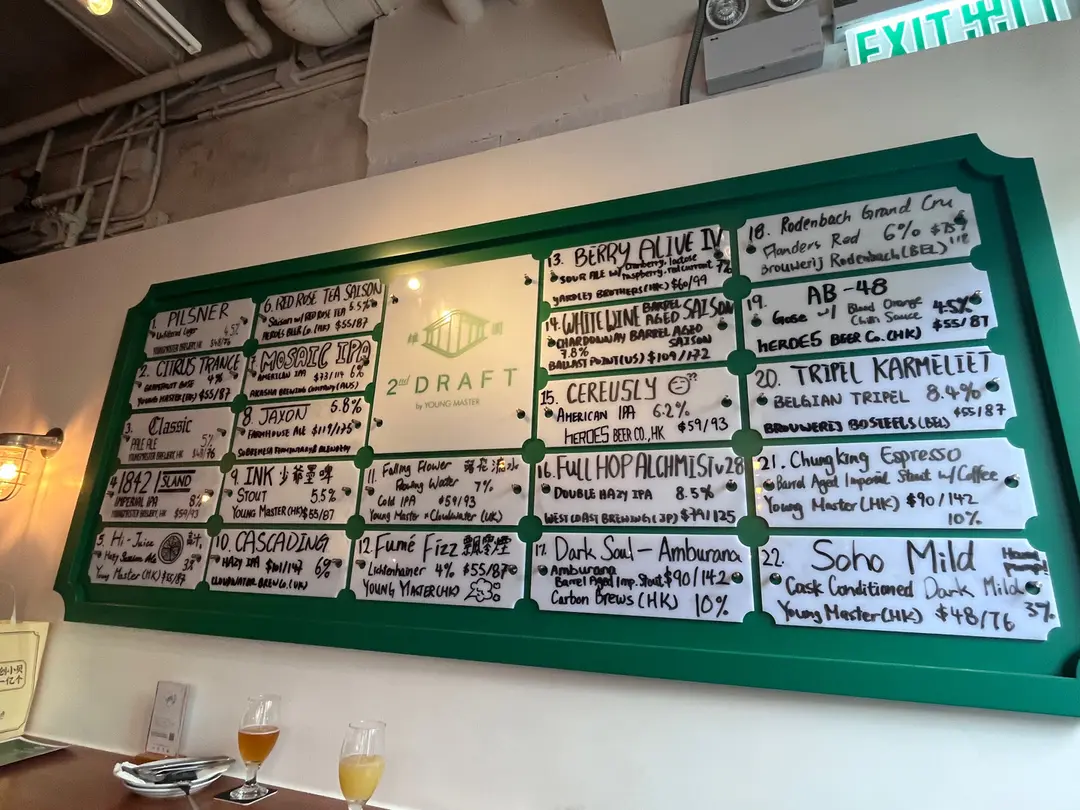 EXIT 出口
1. PILSNER
Unfiltered Lager 4.5%
YOUNGMASTER BREWERY, HK $48/76
2. CITRUS TRANCE
GRAPEFRUIT GOSE 4%
YOUNG MASTER (HK) $55/87
3. Classic
PALE ALE 5%
YOUNGMASTER BREWERY, HK $48/76
4. 1842 ISLAND
IMPERIAL IPA 8%
YOUNGMASTER BREWERY, HK $59/93
5. Hi-Juice
Hazy Session Ale
Young Master (HK) $55/87
6. RED ROSE TEA SAISON
Saison w/ RED ROSE TEA 5.5%
HEROES BEER Co. (HK) $55/87
MOSAIC IPA
AMERICAN IPA $73/114 6%
AKASHA BREWING COMPANY (AUS)
8. JAXON 5.8%
FARMHOUSE ALE $119/175
9. INK 少爺墨啤
STOUT 5.5%
YOUNG MASTER (HK) $55/87
10. CASCADING
HAZY IPA $101/147 6%
CLOUDWATER BREW CO. (UK)
2nd DRAFT
by YOUNG MASTER
11. Falling Flower 落花流水
Flowing Water 7%
Cold IPA $59/93
Young Master × Cloudwater (UK)
12. Fumé Fizz 飄零煙
Lichtenhainer 4% $55/87
YOUNG MASTER (HK)
13. BERRY ALIVE IV
SOUR ALE w/ Cranberry, lactose
raspberry, red currant 7%
YARDLEY BROTHERS (HK) $60/99
14. WHITE WINE BARREL AGED SAISON
CHARDONNAY BARREL AGED SAISON
7.8%
BALLAST POINT (US) $109/172
15. CEREUSLY ??
AMERICAN IPA 6.2%
HEROES BEER CO., HK $59/93
16. FULL HOP ALCHMIST v28
DOUBLE HAZY IPA 8.5%
WEST COAST BREWING (JP) $79/125
17. Dark Soul - Amburana
Amburana
Barrel Aged Imp. Stout $90/142
Carbon Brews (HK) 10%
18. Rodenbach Grand Cru
Flanders Red 6% $75
Brouwerij Rodenbach (BEL) 118
19. AB-48
Gose w/ Blood Orange Chilli Sauce 4.5%
$55/87
HEROES BEER Co. (HK)
20. TRIPEL KARMELIET
BELGIAN TRIPEL 8.4%
$55/87
BROUWERIJ BOSTEELS (BEL)
21. Chungking Espresso
Barrel Aged Imperial Stout w/ Coffee
Young Master (HK) $90/142
10%
22. Soho Mild Hand pump!
Cask Conditioned Dark Mild
Young Master (HK) $48/76 3%